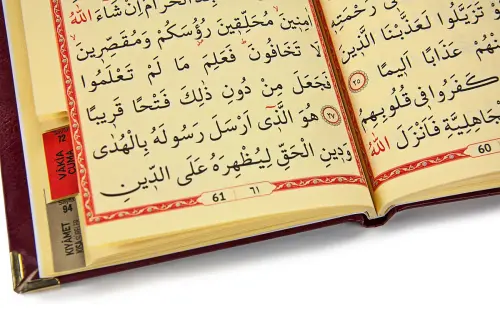 رَحْمَتِهِ
تَزَيَّلُوا لَعَذَّبْنَا الَّذِينَ
عَذَابًا اَلِيمًا ﴿٢٥﴾
كَفَرُوا فِى قُلُوبِهِمُ
فَاَنْزَلَ اللّٰهُ
60
الْحَرَامَ اِنْ شَاءَ اللّٰهُ
اٰمِنِينَ مُحَلِّقِينَ رُؤُسَكُمْ وَمُقَصِّرِينَ
لَا تَخَافُونَ فَعَلِمَ مَا لَمْ تَعْلَمُوا
فَجَعَلَ مِنْ دُونِ ذٰلِكَ فَتْحًا قَرِيبًا
﴿٢٧﴾ هُوَ الَّذٖى اَرْسَلَ رَسُولَهُ بِالْهُدٰى
وَدٖينِ الْحَقِّ لِيُظْهِرَهُ عَلَى الدّٖينِ
61 ٦١
72
VAKIA
CUMA
94
KIYÂMET